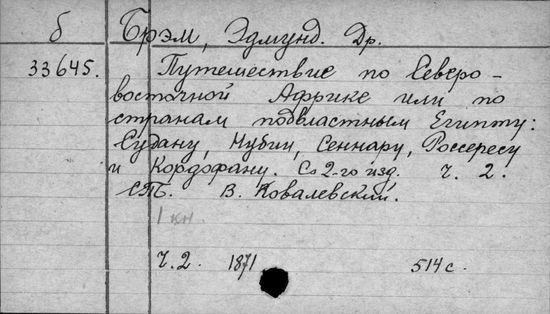 б Брэм, Эдмунд. Др.
33645. Путешествие по Северо-
восточной Африке или по
странам подвластным Египту:
Судану, Нубии, Сеннару, Россересу
и Кордофану. Со 2-го изд. Ч. 2.
СПб. В. Ковалевский.
1 кн.
Ч. 2. 1871 514 с.